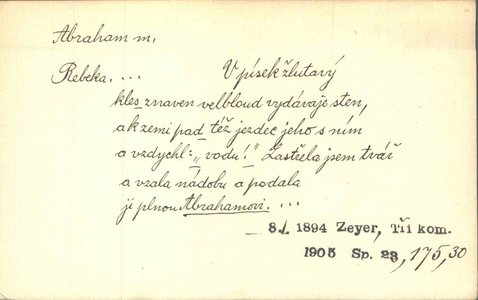 Abraham m.
Rebeka. ... V písek žlutavý
kles znaven velbloud vydávaje sten,
a k zemi pad též jezdec jeho s ním
a vzdychl: „vodu!" Zastřela jsem tvář
a vzala nádobu a podala
ji plnou Abrahamovi. ...
8./ 1894 Zeyer, Tři kom.
1905 Sp. 23, 175, 30